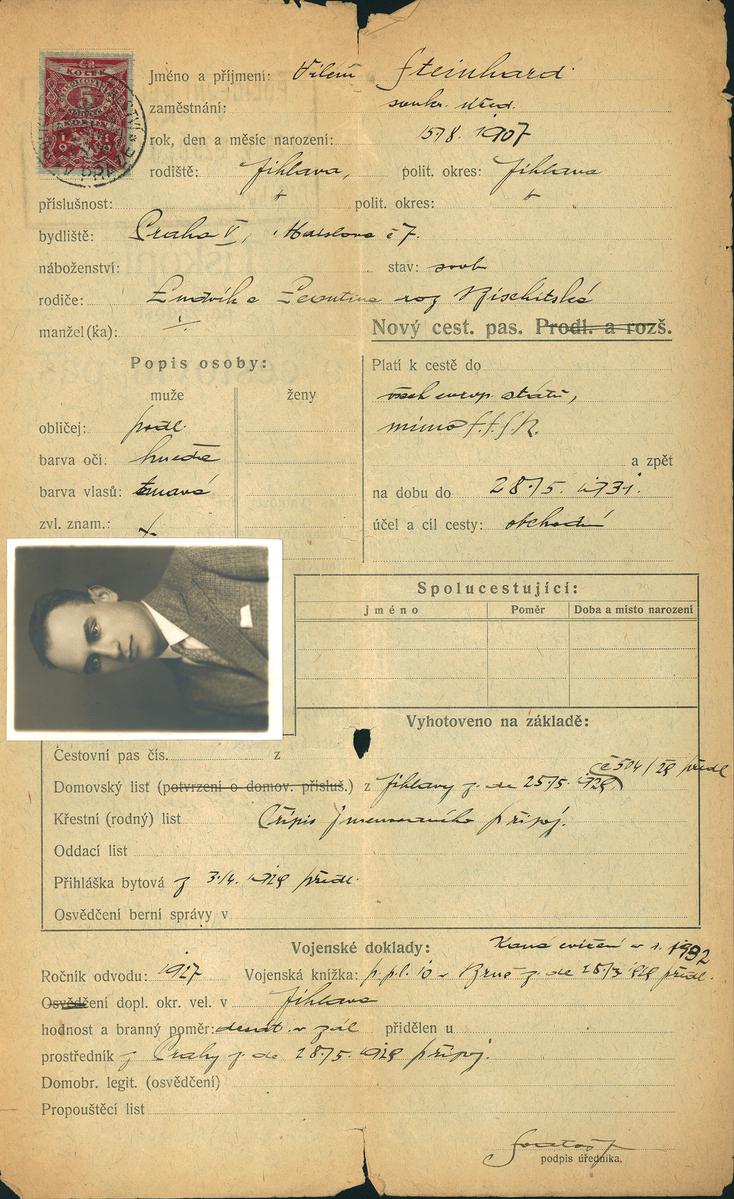 Jméno a příjmení: Vilém Steinhard
zaměstnání: soukr. úřed.
rok, den a měsíc narození: 15/8. 1907
rodiště: Jihlava, polit. okres: Jihlava
příslušnost: polit. okres:
bydliště: Praha V, Maislova č 7.
náboženství: stav: svob
rodiče: Ludvík a Leontina roz
manžel (ka):
Nový cest. pas. Prodl. a rozš.
Popis osoby:
muže ženy
obličej: podl
barva očí: hnědé
barva vlasů: tmavé
zvl. znam.:
Platí k cestě do
všech evrop. států,
mimo
a zpět
na dobu do 28/5. 1931.
účel a cíl cesty: obchodní
Spolucestující:
jméno Poměr Doba a místo narození
Vyhotoveno na základě:
Cestovní pas čís. z
č 504/29 předl
Domovský list (potvrzení o domov. přísluš.) z Jihlavy z. de 25/5. 1929
Křestní (rodný) list jmenovaného připoj.
Oddací list
Přihláška bytová z 3/4. 1929 předl.
Osvědčení berní správy v
Vojenské doklady:
Koná cvičení v r. 1932
Ročník odvodu: 1927 Vojenská knížka: p. pl. 10 v Brně z. de předl.
Osvědčení dopl. okr. vel. v Jihlava
hodnost a branný poměr: v zál přidělen u
prostředník z Prahy z. de 28/5. 1929 připoj.
Domobr. legit. (osvědčení)
Propouštěcí list
podpis úředníka.